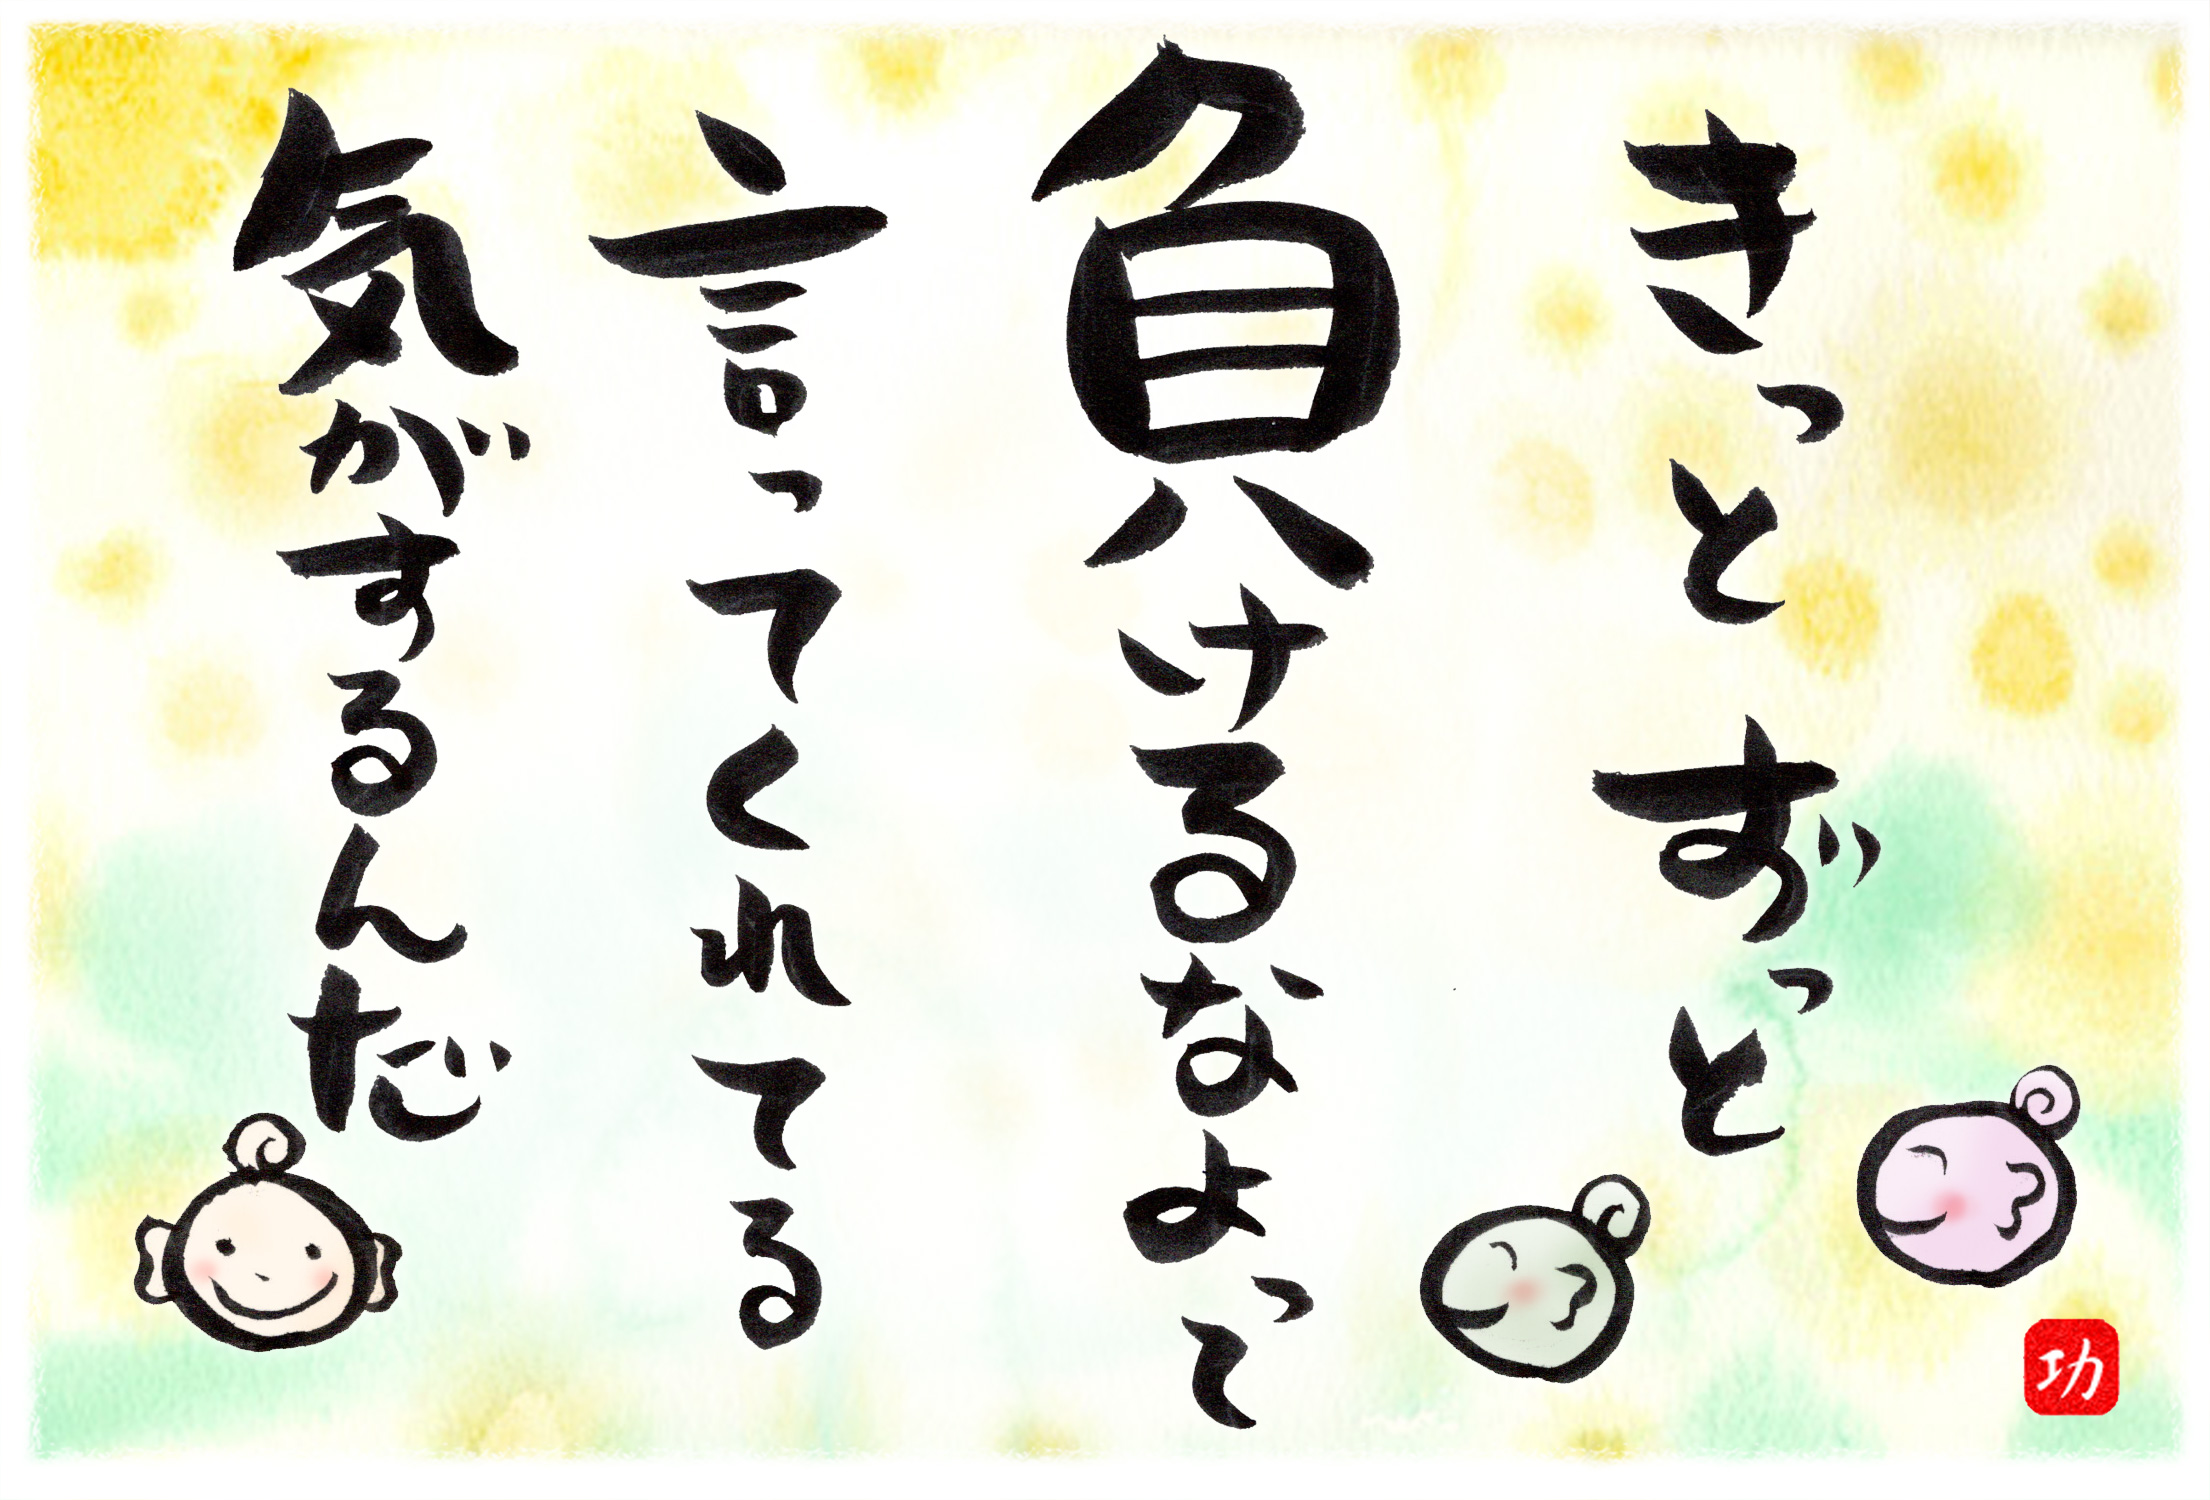 きっと ずっと
負けるなよって
言ってくれてる
気がするんだ
功